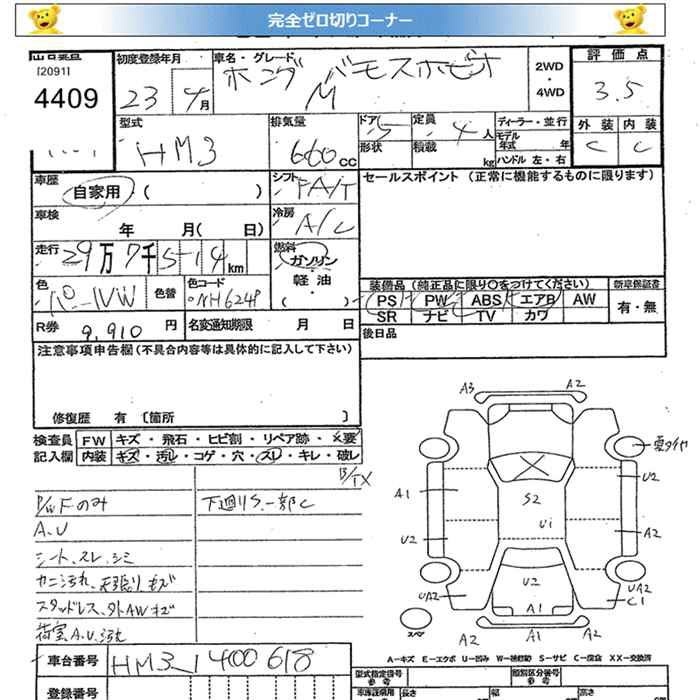 完全ゼロ切りコーナー
[2091]
4409
初度登録年月
23年4月
車名・グレード
ホンダ バモスホビオ
M
2WD
・
4WD
評価点
3.5
外装 内装
C C
型式
HM3
排気量
660cc
ドア 5
形状
定員 4人
積載 kg
ディーラー・並行
モデル年式 年
ハンドル 左・右
車歴
自家用 ( )
シフト
FA/T
セールスポイント (正常に機能するものに限ります)
車検
年 月( 日)
冷房
A/C
走行
29万7千514km
燃料
ガソリン
軽油
( )
色
パールW
色替
色コード
NH624P
装備品 (純正品に限り○をつけてください)
新車保証書
PS PW ABS エアB AW
SR ナビ TV カワ
有・無
R券
9,910円
名変通知期限 月 日
後日品
注意事項申告欄 (不具合内容等は具体的に記入して下さい)
修復歴 有 〔箇所 〕
検査員
記入欄
FW キズ・飛石・ヒビ割・リペア跡・×要
内装 キズ・汚レ・コゲ・穴・スレ・キレ・破レ
P/W Fのみ
下廻りS、一部C
A.U
シート、スレ、シミ
カーニ汚れ、天張りキズ
スタッドレス、外AWキズ
荷室A.U.汚れ
A3 A2
夏タイヤ
A1 S2 U2
U2 U1 A2
UA2 U2 UA2
A1 C1
スペア
A2 A1 A2
A－キズ E－エクボ U－凹み W－補修跡 S－サビ C－腐食 XX－交換済
車台番号
HM3-1400618
登録番号
型式指定番号
参考
類別区分番号
参考
長さ 幅 高さ